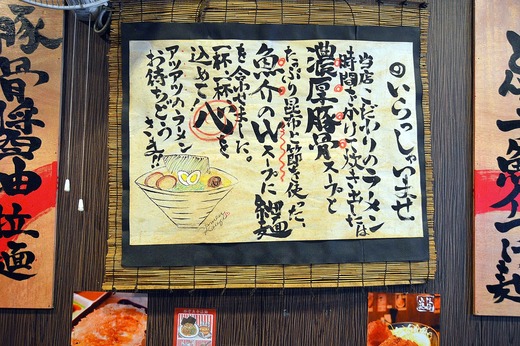 ◎いらっしゃいませ
当店こだわりのラーメンは
時間をかけて炊き出した
濃厚豚骨スープと
たっぷり昆布と節を使った、
魚介のWスープに細麺
を合せました。
一杯一杯心を
込めて!
アツアツのラーメン
お待ちどうさまです!!
豚骨醤油拉麺